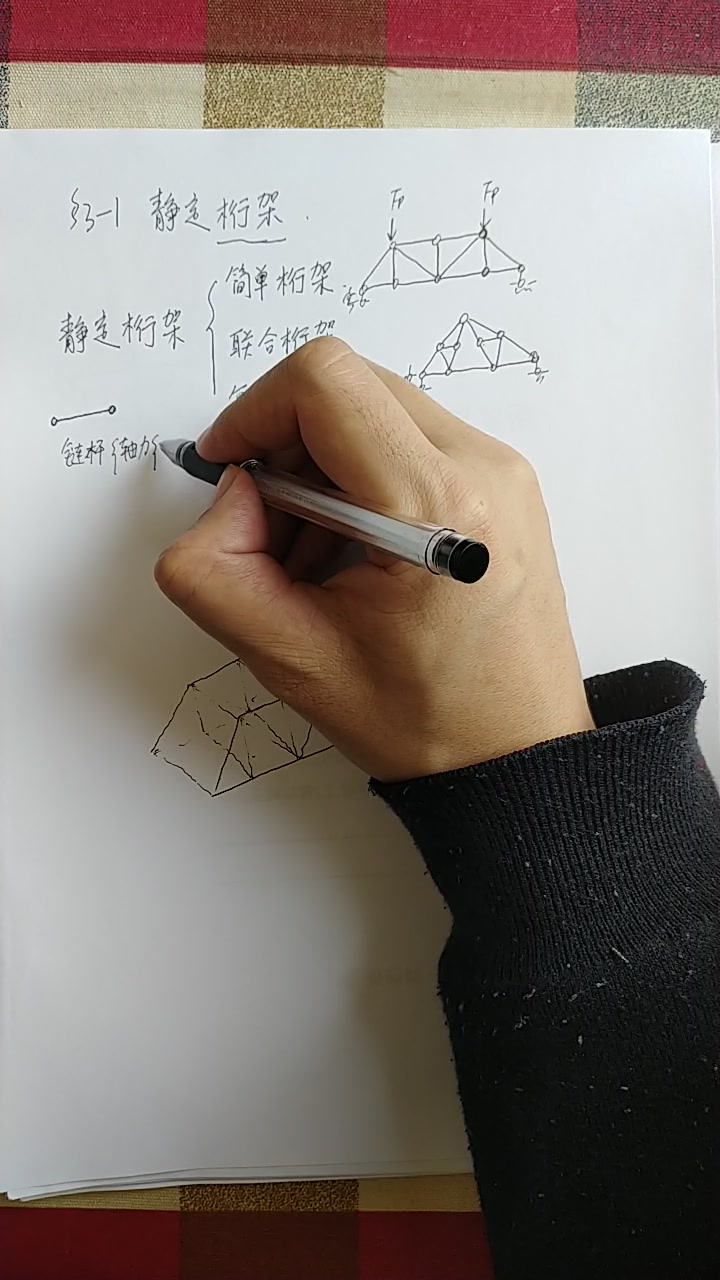 §3-1 静定桁架
Fp
Fp
简单桁架
静定桁架
联合桁架
链杆 {轴力}